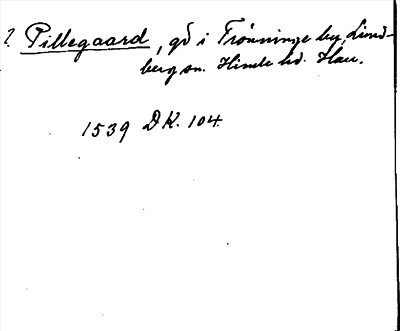 ? Pillegaard, gd i Tröninge by, Lind-
berg sn. Himle hd. Hall.
1539 DK. 104.